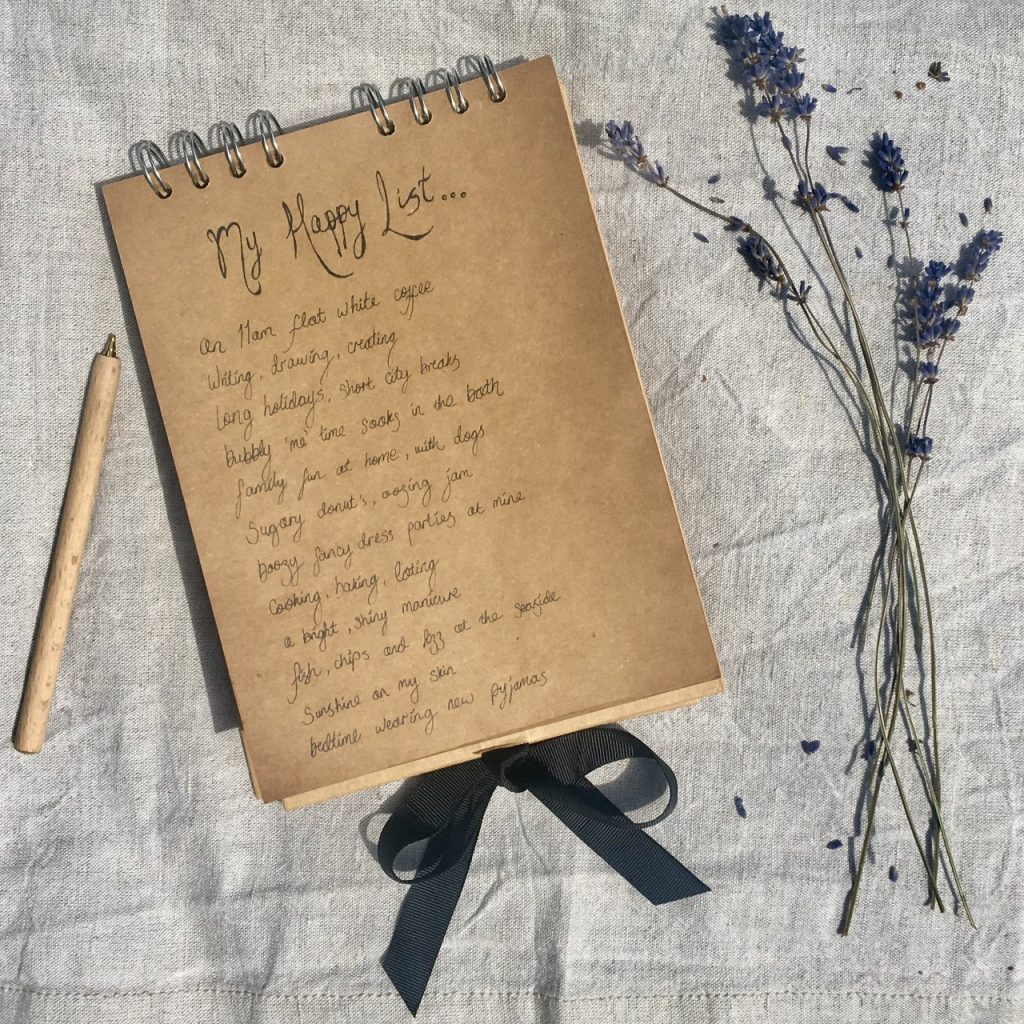 My Happy List...
an 11am flat white coffee
Writing, drawing, creating
long holidays, short city breaks
bubbly 'me' time soaks in the bath
family fun at home, with dogs
Sugary donut's, oozing jam
boozy fancy dress parties at mine
Cooking, baking, eating
a bright, shiny manicure
fish, chips and fizz at the seaside
Sunshine on my skin
bedtime wearing new pyjamas